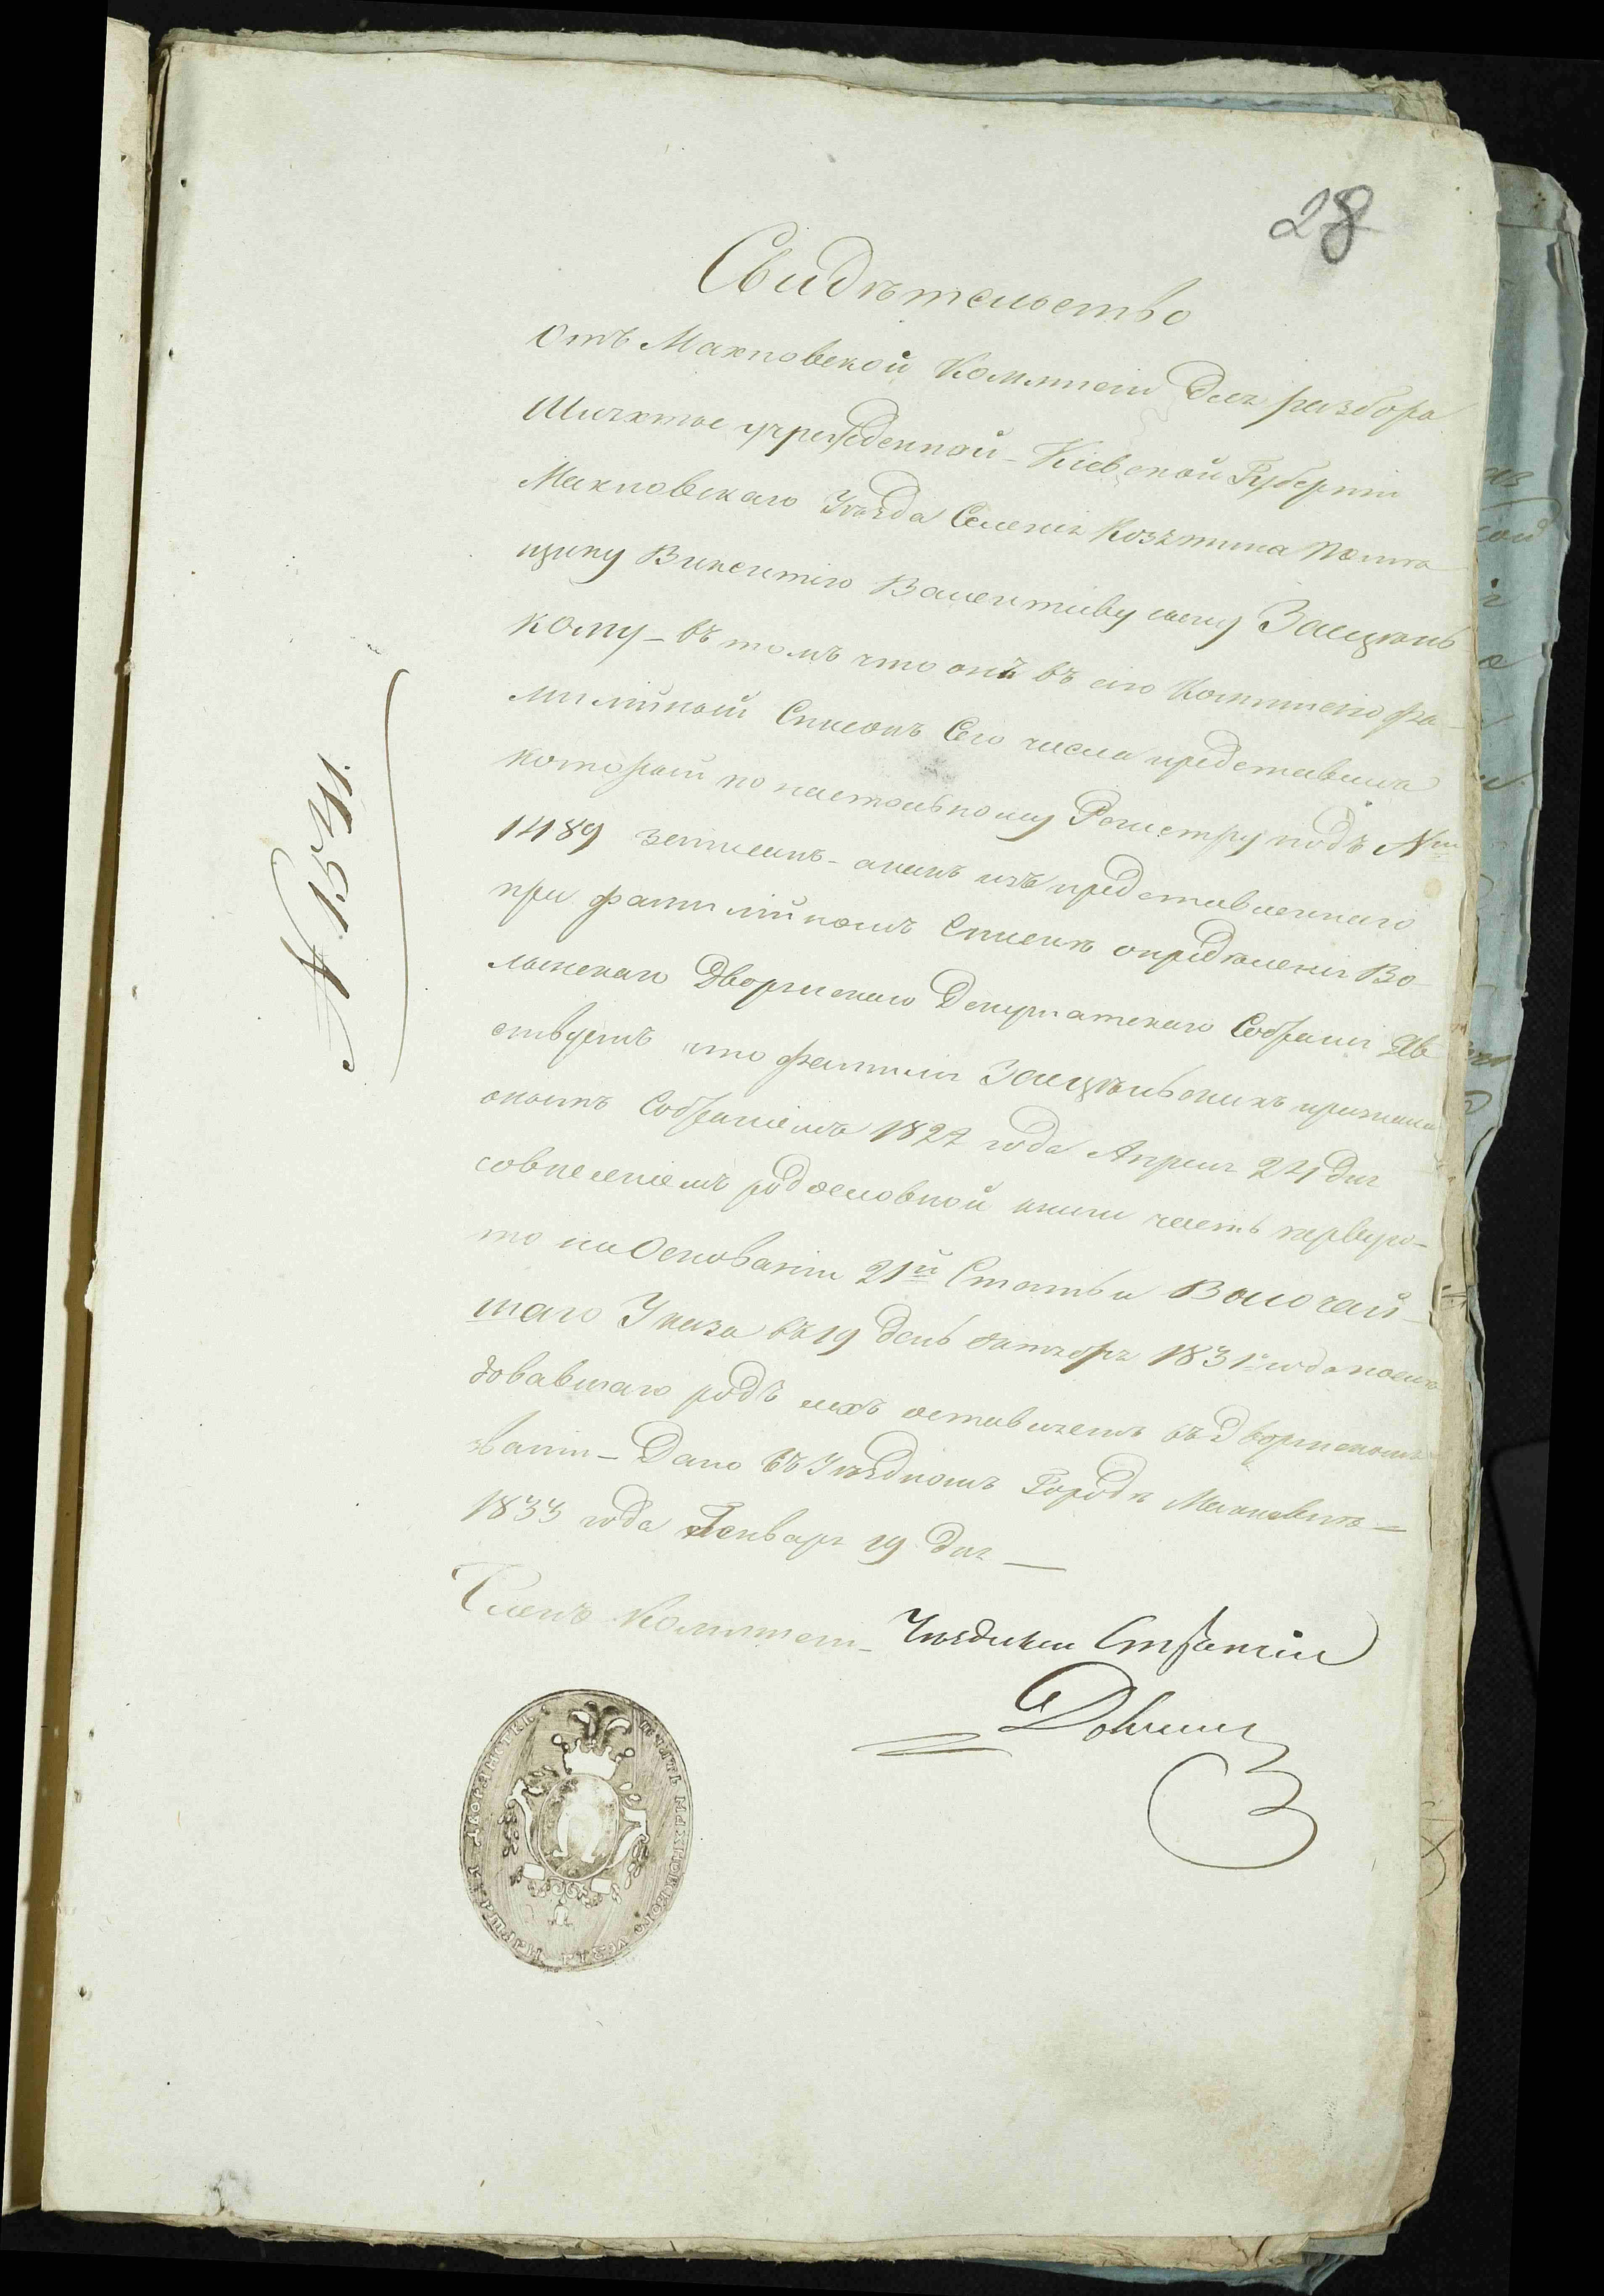 28
Свидѣтельство
Отъ Махновской Коммисіи для разбора
Шляхты учрежденной - Кіевской Губерніи
Махновскаго Уѣзда Селенія Козятина помѣ
щику Викентію Валентиву сыну Залцѣнь
кому - въ томъ что онъ въ сію Коммисію фа-
милійный Списокъ Сего числа представилъ
который по настольному Регистру подъ №м
1489 записанъ - а какъ изъ представленнаго
при фамилійномъ Спискѣ опредѣленія Во-
лынскаго Дворянскаго Депутатскаго Собранія Яв
ствуетъ что фамилія признана
онымъ Собраніемъ 1827 года Апреля 24 дня
совнесеніемъ родословной книги часть первую -
то на Основаніи 21й Статьи Высочай-
шаго Указа въ 19 день октября 1831 года послѣ
довавшаго родъ ихъ оставляетъ въ Дворянскомъ
званіи - Дано въ Уѣздномъ Городѣ Махновкѣ -
1833 года Генваря 19 дня -
Членъ Коммисіи -
N 1541.
ПЕЧАТЬ МАХНОВСКОГО УЕЗДА МАРШАЛА ДВОРАНСТВА